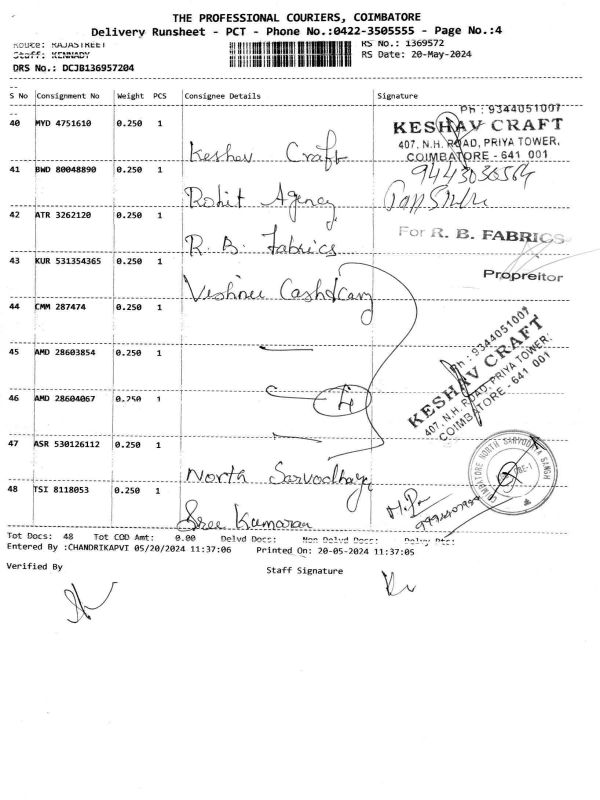 THE PROFESSIONAL COURIERS, COIMBATORE
Delivery Runsheet - PCT - Phone No.:0422-3505555 - Page No.:4
Route: RAJASTREET
RS No.: 1369572
Staff: KENNADY
RS Date: 20-May-2024
DRS No.: DCJB136957204
S No Consignment No Weight PCS Consignee Details Signature
40 MYD 4751610 0.250 1 Keshav Craft
Ph : 9344051007
KESHAV CRAFT
407, N.H. ROAD, PRIYA TOWER,
COIMBATORE - 641 001
41 BWD 80048890 0.250 1 Rohit Agency
9443036564
42 ATR 3262120 0.250 1 R. B. Fabrics
For R. B. FABRICS
Propreitor
43 KUR 531354365 0.250 1
44 CMM 287474 0.250 1
45 AMD 28603854 0.250 1
46 AMD 28604067 0.250 1
Ph : 9344051007
KESHAV CRAFT
407, N.H. ROAD, PRIYA TOWER,
COIMBATORE - 641 001
47 ASR 530126112 0.250 1 North Sarvodhaya
COIMBATORE NORTH SARVODAYA SANGH
48 TSI 8118053 0.250 1 Sree Kumaran
Tot Docs: 48 Tot COD Amt: 0.00 Delvd Docs: Non Delvd Docs: Delvy Pts:
Entered By :CHANDRIKAPVI 05/20/2024 11:37:06 Printed On: 20-05-2024 11:37:05
Verified By
Staff Signature